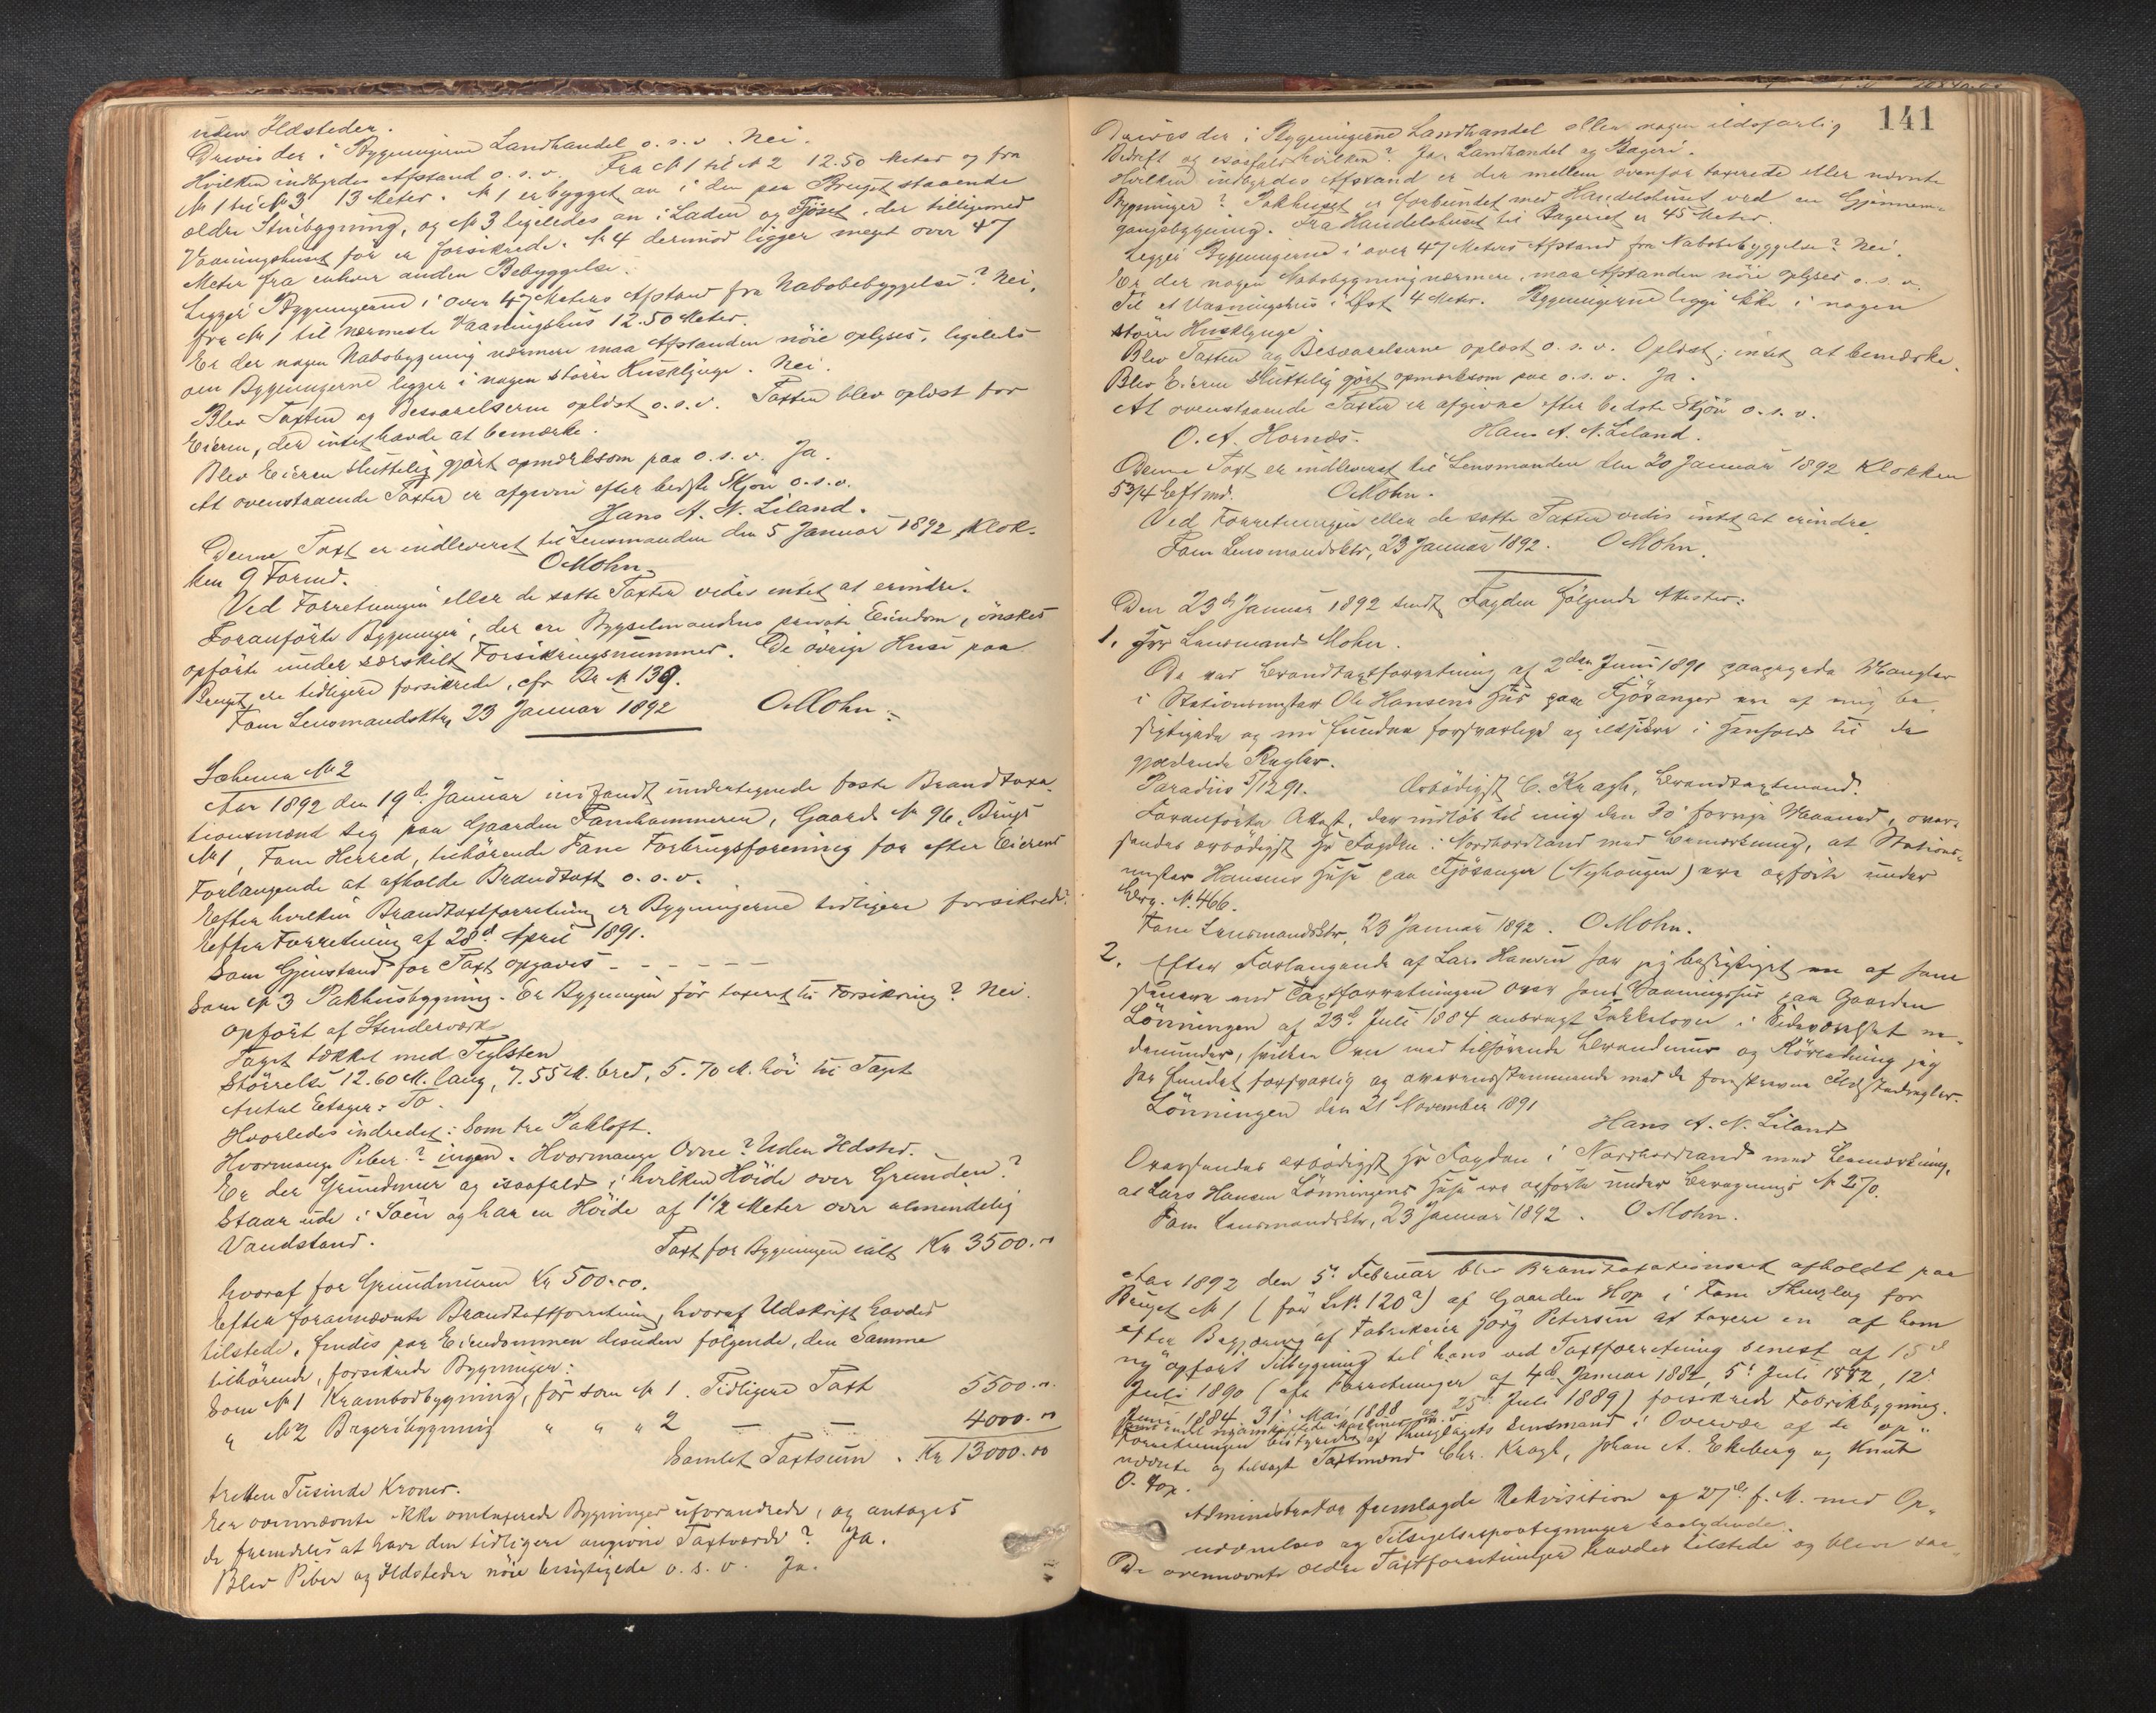 uden Ildsteder.
Drives der i Bygningerne Landhandel o. s. v. Nei.
Hvilken indbyrdes Afstand o. s. v. Fra № 1 til № 2 12.50 Meter og fra
№ 1 til № 3 13 Meter. № 1 er bygget an i den paa Bruget staaende
ældre Stuebygning, og № 3 ligeledes an i Laden og Fjöset, der tilligemed
Vaaningshuset för er forsikrede. № 4 derimod ligger meget over 47
Meter fra enhver anden Bebyggelse.
Ligger Bygningerne i over 47 Meters Afstand fra Nabobebyggelse? Nei,
fra № 1 til nærmeste Vaaningshus 12.50 Meter.
Er der nogen Nabobygning nærmere maa Afstanden nöie oplyses, ligeledes
om Bygningerne ligger i nogen större Husklynge. Nei.
Blev Taxten og Besvarelserne oplæst o. s. v. Taxten blev oplæst for
Eieren, der intet havde at bemærke.
Blev Eieren sluttelig gjört opmærksom paa o. s. v. Ja.
At ovenstaaende Taxter er afgivne efter bedste Skjön o. s. v.
Hans A. N. Liland.
Denne Taxt er indleveret til Lensmanden den 5 Januar 1892, Klok-
ken 9 Formd. O Mohn.
Ved Forretningen eller de satte Taxter vides intet at erindre.
Foranförte Bygninger, der ere Bygselmandens private Eiendom, önskes
opförte under særskilt Forsikringsnummer. De övrige Huse paa
Bruget ere tidligere forsikrede, cfr Br № 139.
Fane Lensmandsktr, 23 Januar 1892 O Mohn.
Schema № 2
Aar 1892 den 19de Januar indfandt undertegnede faste Brandtaxa-
tionsmænd sig paa Gaarden Fanehammeren, Gaards № 96, Brugs
№ 1, Fane Herred, tilhörende Fane Forbrugsforening for efter Eierens
Forlangende at afholde Brandtaxt o. s. v.
Efter hvilken Brandtaxtforretning er Bygningerne tidligere forsikrede?
Efter Forretning af 28de April 1891.
Som Gjenstand for Taxt opgaves - - - - -
Som № 3 Pakhusbygning. Er Bygningen för taxeret til Forsikring? Nei.
Opfört af Stenderværk
Taget tækket med Teglsten
Störrelse 12.60 M. lang, 7.55 M. bred, 5.70 M. höi til Taget
Antal Etager: To.
Hvorledes indredet: Som tre Pakloft.
Hvormange Piber? ingen. Hvormange Ovne? Uden Ildsted.
Er der Grundmur og isaafald i hvilken Höide over Grunden?
Staar ude i Söen og har en Höide af 1½ Meter over almindelig
Vandstand.
Taxt for Bygningen ialt Kr 3500.00
hvoraf for Grundmuren Kr 500.00.
Efter forannævnte Brandtaxtforretning, hvoraf Udskrift havdes
tilstede, findes paa Eiendommen desuden følgende, den Samme
tilhörende, forsikrede Bygninger:
Som № 1 Krambodbygning, för som № 1. Tidligere Taxt 5500.00
" № 2 Bageribygning " " " 2 — — 4000.00
Samlet Taxtsum. Kr 13000.00
tretten Tusinde Kroner.
Er ovennævnte ikke omtaxerede Bygninger uforandrede, og antages
de fremdeles at have den tidligere angivne Taxtværdi? Ja.
Blev Piber og Ildsteder nöie besigtigede o. s. v. Ja.
141
Drives der i Bygningerne Landhandel eller nogen ildsfarlig
Bedrift og isaafald hvilken? Ja. Landhandel og Bageri.
Hvilken indbyrdes Afstand er der mellem ovenfor taxerede eller nævnte
Bygninger? Pakhuset er forbundet med Handelshuset ved en Gjennem-
gangsbygning. Fra Handelshuset til Bageriet er 45 Meter.
Ligger Bygningerne i over 47 Meters Afstand fra Nabobebyggelse? Nei.
Er der nogen Nabobygning nærmere, maa Afstanden nöie oplyses o. s. v.
Til et Vaaningshus i Öst 4 Meter. Bygningerne ligge ikke i nogen
större Husklynge.
Blev Taxten og Besvarelserne oplæst o. s. v. Oplæst; intet at bemærke.
Blev Eieren sluttelig gjört opmærksom paa o. s. v. Ja.
At ovenstaaende Taxter er afgivne efter bedste Skjön o. s. v.
O. A. Hornæs. Hans A. N. Liland.
Denne Taxt er indleveret til Lensmanden den 20 Januar 1892 Klokken
5 3/4 Eftmd. O Mohn.
Ved Forretningen eller de satte Taxter vides intet at erindre.
Fane Lensmandsktr, 23 Januar 1892. O Mohn.
Den 23de Januar 1892 sendt Fogden fölgende Attester:
1. Hr Lensmand Mohn.
De ved Brandtaxtforretning af 2den Juni 1891 paapegede Mangler
i Stationsmester Ole Hansens Hus paa Fjösanger ere af mig be-
sigtigede og nu fundne forsvarlige og ildsikre i Henhold til de
gjældende Regler.
Paradiis 5/12 91. Ærbödigst C. Kragh, Brandtaxtmand.
Foranförte Attest, der indlöb til mig den 30 forrige Maaned, over-
sendes ærbödigst Hr Fogden i Nordhordland med Bemærkning, at Stations-
mester Hansens Huse paa Fjösanger (Nyhaugen) ere opförte under
Brg. № 466.
Fane Lensmandsktr, 23 Januar 1892. O Mohn.
2. Efter Forlangende af Lars Hansen har jeg besigtiget en af ham
senere end Taxtforretningen over hans Vaaningshus paa Gaarden
Lönningen af 23de Juli 1884 anbragt Kakkelovn i Sideværelset ne-
denunder, hvilken Ovn med tilhörende Brandmur og Rörledning jeg
har fundet forsvarlig og overensstemmende med de foreskrevne Ildstedregler.
Lönningen den 21de November 1891
Hans A. N. Liland
Oversendes ærbödigst Hr Fogden i Nordhordland med Bemærkning,
at Lars Hansen Lönningens Huse ere opförte under Bevogtnings № 270.
Fane Lensmandsktr, 23 Januar 1892. O Mohn.
Aar 1892 den 5te Februar blev Brandtaxationsret afholdt paa
Bruget № 1 (för L.№ 120a) af Gaarden Hop i Fane Thinglag for
efter Begjæring af Fabrikeier Jörg Petersen at taxere en af ham
ny opfört Tilbygning til hans ved Taxtforretning senest af 15de
Juli 1890 (cfr Forretninger af 4de Januar 1882, 5te Juli 1882, 12te
Juni 1884, 31te Mai 1888 og 25de Juli 1889) forsikrede Fabrikbygning.
Forretningen bestyredes af Thinglagets Lensmand i Overvær af de op-
nævnte og tilsagte Taxtmænd Chr. Kragh, Johan A. Ekeberg og Knut
O. Hop.
Administrator fremlagde Rekvisition af 27de f. M. med Op-
nævnelses og Tilsigelsespaategninger saalydende.
De ovennævnte ældre Taxtforretninger havdes tilstede og blev saa-